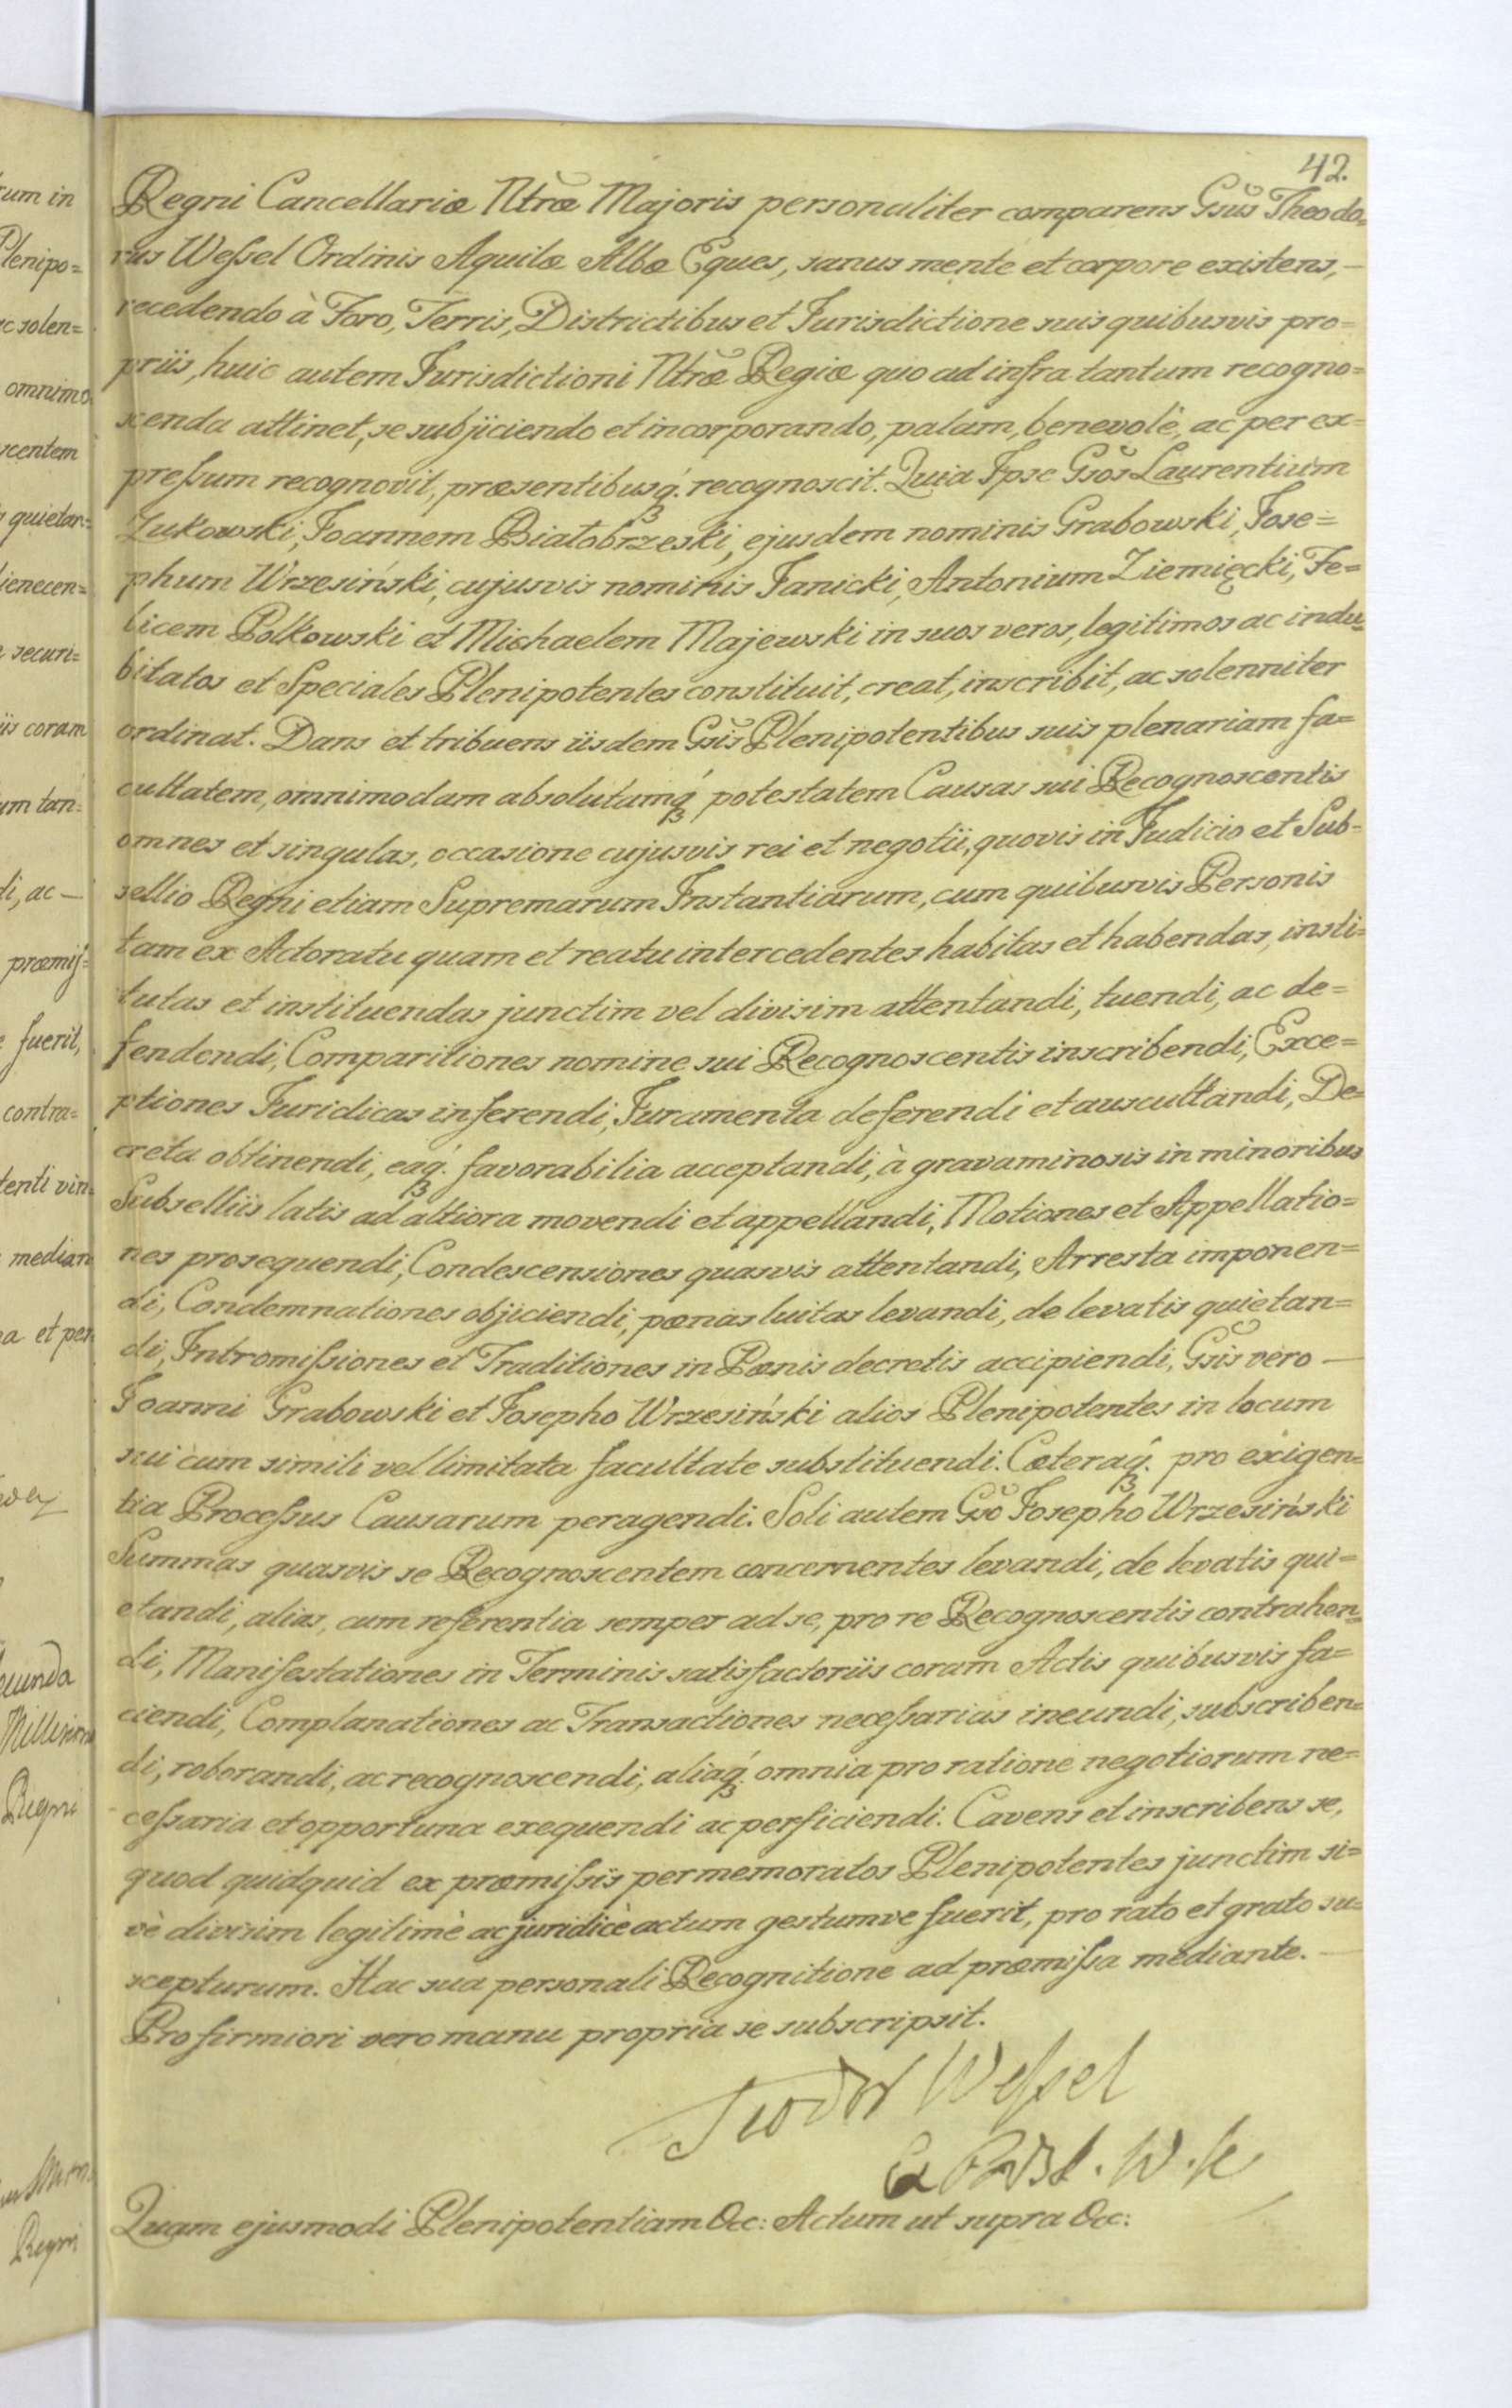 42.
Regni Cancellariæ Ntræ Majoris personaliter comparens Gsus Theodo=
rus Weſsel Ordinis Aquilæ Albæ Eques, sanus mente et corpore existens, —
recedendo à Foro, Terris, Districtibus et Jurisdictione suis quibusvis pro=
priis, huic autem Jurisdictioni Ntræ Regiæ quo ad infra tantum recogno=
scenda attinet, se subjiciendo et incorporando, palam, benevolè, ac per ex=
preſsum recognovit, præsentibusq́ꝫ. recognoscit. Quia Ipse Gsos Laurentium
Zukowski, Joannem Białobrzeski, ejusdem nominis Grabowski, Jose=
phum Wrzesiński, cujusvis nominis Janicki, Antonium Ziemięcki, Fe=
licem Polkowski et Michaelem Majewski in suos veros, legitimos ac indu=
bitatos et Speciales Plenipotentes constituit, creat, inscribit, ac solenniter
ordinat. Dans et tribuens iisdem Gsis Plenipotentibus suis plenariam fa=
cultatem, omnimodam absolutamq́ꝫ potestatem Causas sui Recognoscentis
omnes et singulas, occasione cujusvis rei et negotii, quovis in Judicio et Sub=
sellio Regni etiam Supremarum Instantiarum, cum quibusvis Personis
tam ex Actoratu quam et reatu intercedentes habitas et habendas, insti=
tutas et instituendas junctim vel divisim attentandi, tuendi, ac de=
fendendi, Comparitiones nomine sui Recognoscentis inscribendi, Exce=
ptiones Juridicas inferendi, Juramenta deferendi et auscultandi, De=
creta obtinendi, eaq́ꝫ. favorabilia acceptandi, à gravaminosis in minoribus
Subselliis latis ad altiora movendi et appellandi, Motiones et Appellatio=
nes prosequendi, Condescensiones quasvis attentandi, Arresta imponen=
di, Condemnationes objiciendi, pœnas luitas levandi, de levatis quietan=
di, Intromiſsiones et Traditiones in Bonis decretis accipiendi, Gsis vero —
Joanni Grabowski et Josepho Wrzesiński alios Plenipotentes in locum
sui cum simili vel limitata facultate substituendi. Cæteraq́ꝫ. pro exigen=
tia Proceſsus Causarum peragendi. Soli autem Gso Josepho Wrzesiński
Summas quasvis se Recognoscentem concernentes levandi, de levatis qui=
etandi, alias, cum referentia semper ad se, pro re Recognoscentis contrahen=
di, Manifestationes in Terminis satisfactoriis coram Actis quibusvis fa=
ciendi, Complanationes ac Transactiones neceſsarias ineundi, subscriben=
di, roborandi, ac recognoscendi, aliaq́ꝫ. omnia pro ratione negotiorum ne=
ceſsaria et opportuna exequendi ac perficiendi. Cavens et inscribens se,
quod quidquid ex præmiſsis per memoratos Plenipotentes junctim si=
vè divisim legitimè ac juridicè actum gestumve fuerit, pro rato et grato su=
scepturum. Hac sua personali Recognitione ad præmiſsa mediante. —
Pro firmiori vero manu propria se subscripsit.
Teodor Weſsel
Quam ejusmodi Plenipotentiam &c: Actum ut supra &c: